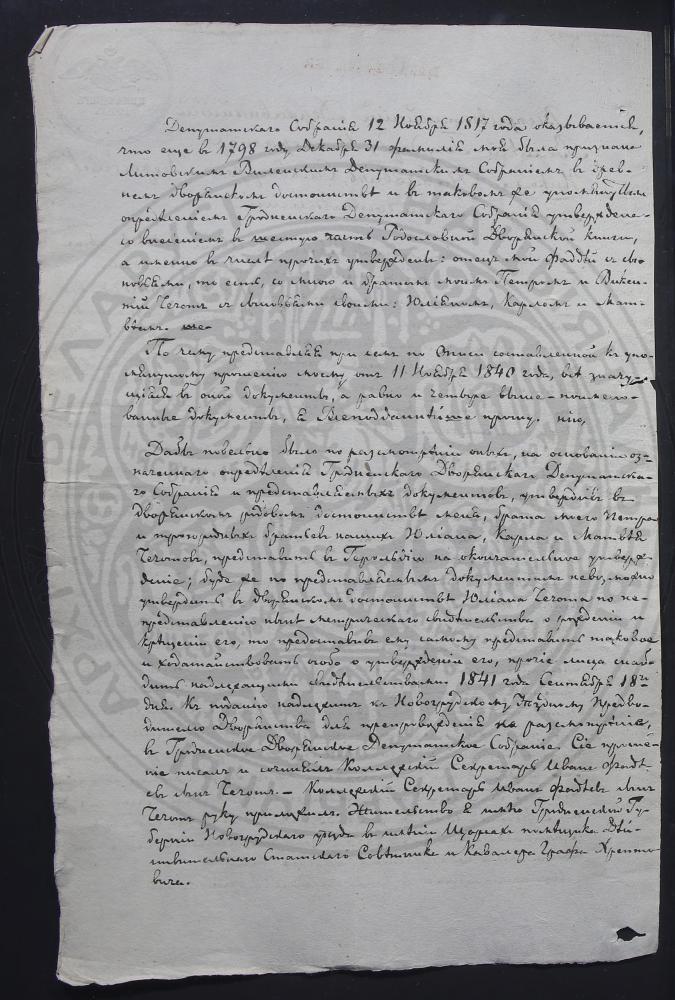 Депутатскаго Собранія 12 Ноября 1817 года оказывается,
что еще в 1798 году Декабря 31 фамилія моя была признана
Литовским Виленским Депутатским Собраніем в древ-
нем дворянском достоинстве и в таковом же упомянутым
определеніем Гродненскаго Депутатскаго Собранія утверждена
со внесеніем в шестую часть Родословной Дворянской книги,
а именно в числе прочих утвержден: отец мой Фаддей с сы-
новьями, то есть, со мною и братом моим Петром и Викен-
тій Чечот с сыновьями своими: Юліяном, Карлом и Мат-
веем.
По чему представляя при сем по Описи составленной к упо-
мянутому прошенію моему от 11 Ноября 1840 года, все знача-
щіяся в оной документы, а равно и четыре выше-поимено-
ванные документы, я Всеподданнейше прошу.
Дабы повелено было по разсмотреніи оных, на основаніи оз-
наченнаго определенія Гродненскаго Дворянскаго Депутатска-
го Собранія и представляемых документов, утвердить в
дворянском родовом достоинстве меня, брата моего Петра
и троюродных братьев наших Юліана, Карла и Матвея
Чечотов, представить в Герольдію на окончательное утверж-
деніе; буде же по представляемым документам невозможно
утвердить в дворянском достоинстве Юліана Чечота по не-
представленію ныне метрическаго свидетельства о рожденіи и
крещеніи его, то предоставив ему самому представить таковое
и ходатайствовать особо о утвержденіи его, прочіе лица снаб-
дить надлежащими свидетельствами 1841 года Сентября 18го
дня. К поданію надлежит к Новогрудскому Уездному Предво-
дителю Дворянства для препровожденія на разсмотреніе,
в Гродненское Дворянское Депутатское Собраніе. Сіе проше-
ніе писал и сочинял Коллежскій Секретарь Иван Фадде-
ев сын Чечот. — Коллежскій Секретарь Иван Фаддеев сын
Чечот руку приложил. Жительство я имею Гродненской Гу-
берніи Новогрудскаго уезда в именіи Щорсах помещика Дей-
ствительнаго Статскаго Советника и Кавалера Графа Хрепто-
вича.